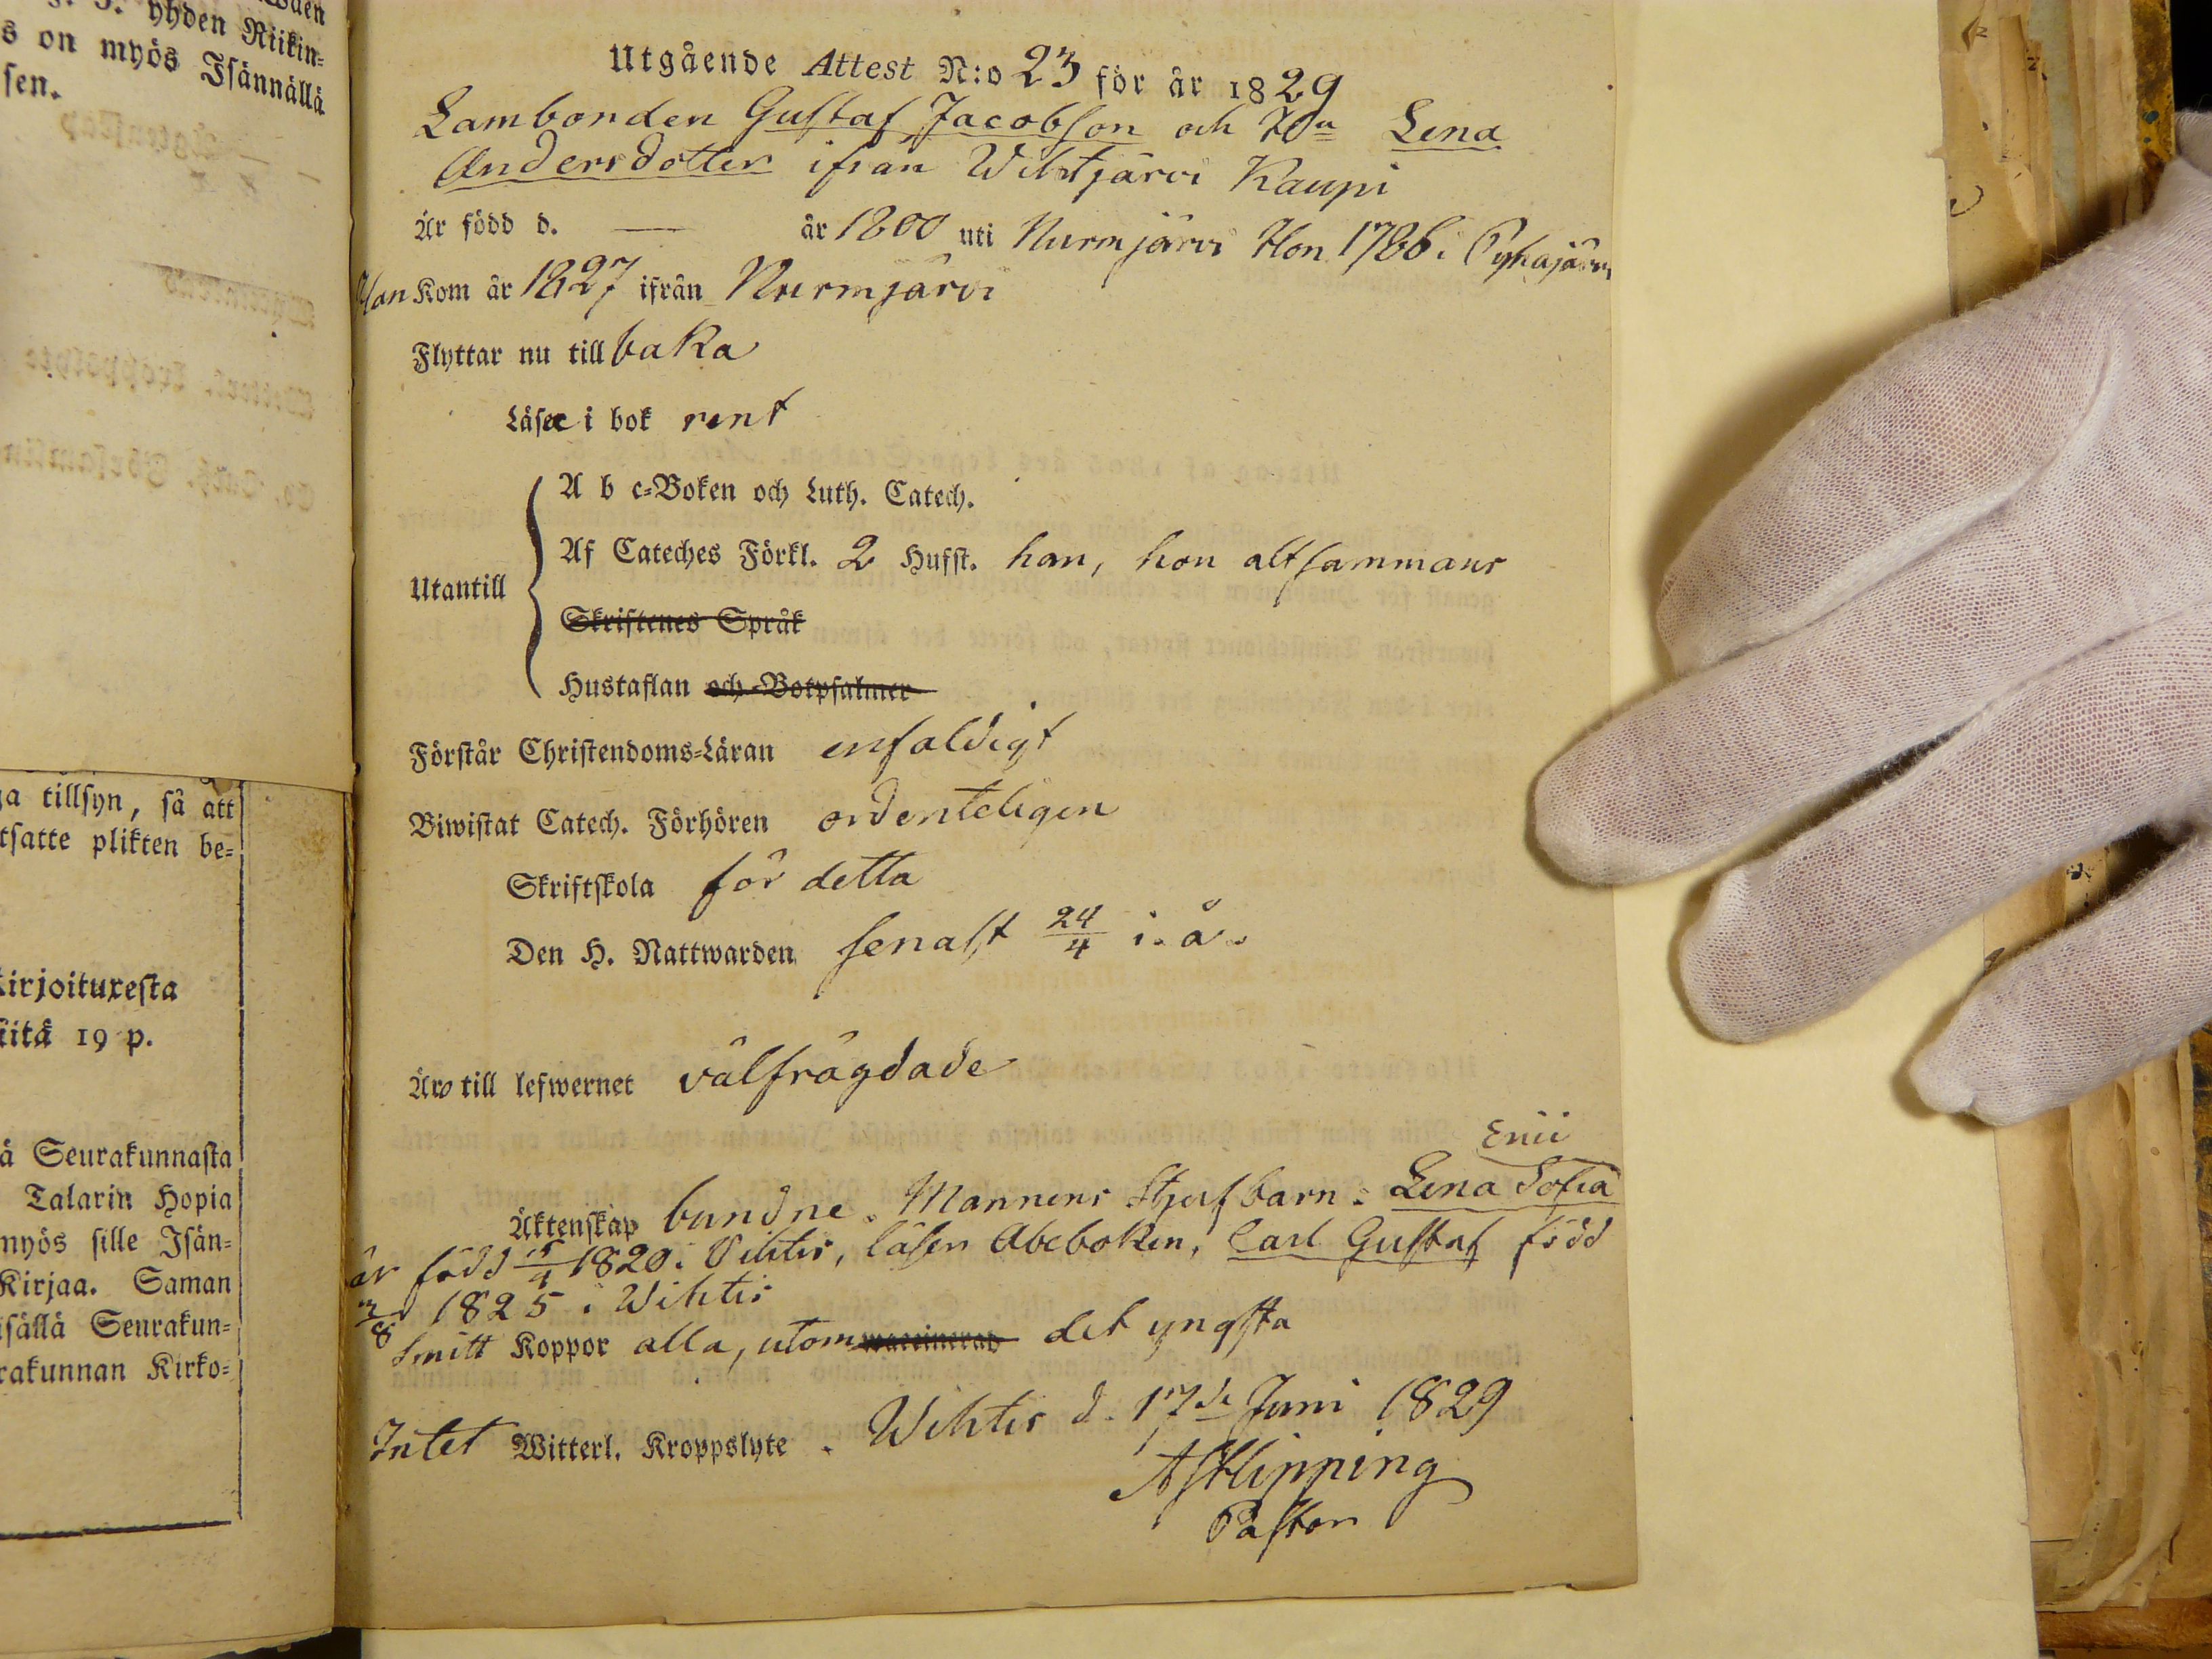 yhden Riikin=
s on myös Isännällä
sen.
a tillsyn, så att
tsatte plikten be=
kirjoituxesta
iitä 19 p.
ä Seurakunnasta
Talarin Hopia
myös sille Isän=
Kirjaa. Saman
isällä Seurakun=
rakunnan Kirko=
Utgående Attest N:o 23 för år 1829
Lambonden Gustaf Jacobson och Hu Lena
Andersdotter ifrån Wihtjärvi Kaupi
Är född d. — år 1800 uti Nurmjärvi Hon 1786 i Pyhäjärvi
Han Kom år 1827 ifrån Nurmjärvi
Flyttar nu till baka
Läser i bok rent
Utantill
A b c=Boken och Luth. Catech.
Af Cateches Förkl. 2 Hufst. han, hon altsammans
Skriftenes Språk
Hustaflan och Botpsalmer
Förstår Christendoms=Läran enfaldigt
Biwistat Catech. Förhören ordenteligen
Skriftskola för detta
Den H. Nattwarden senast 24/4 i. å.
Äro till lefwernet välfrägdade
Enii
Äktenskap bundne. Mannens Stjufbarn: Lena Sofia
är född 15/4 1820 i Vihtis, läser Abcboken, Carl Gustaf född
3/8 1825 i Wihtis
Smitt Koppor alla, utom vaccinerad det yngsta
Intet Witterl. Kroppslyte. Wihtis d. 17de Juni 1829
AfHlipping
Pastor